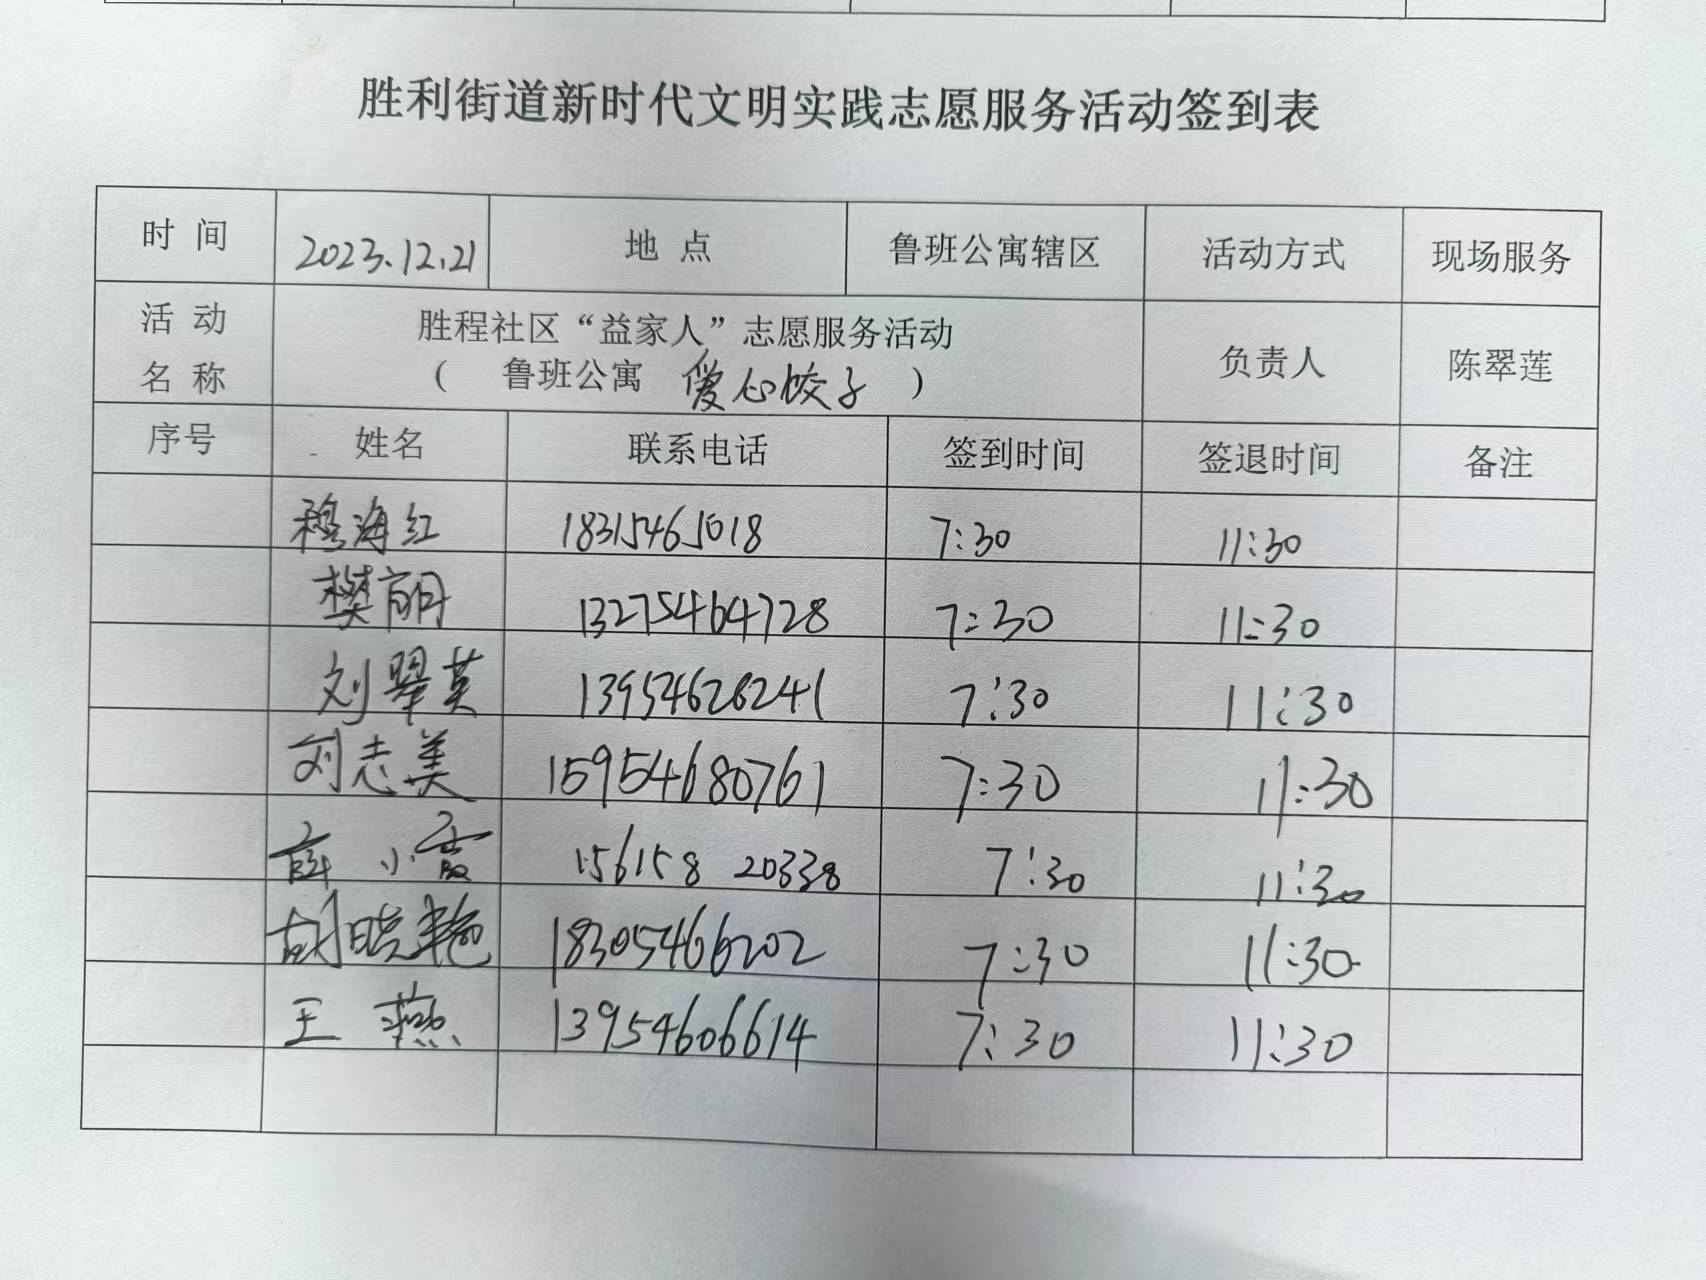 胜利街道新时代文明实践志愿服务活动签到表
时 间 2023.12.21 地 点 鲁班公寓辖区 活动方式 现场服务
活 动 名 称 胜程社区“益家人”志愿服务活动 负责人 陈翠莲
( 鲁班公寓 爱心饺子 )
序号 姓名 联系电话 签到时间 签退时间 备注
穆海红 18315465018 7:30 11:30
樊丽 13275464728 7:30 11:30
刘翠英 13954628241 7:30 11:30
刘志美 15954680761 7:30 11:30
薛小霞 156158 20338 7:30 11:30
胡晓艳 18305466202 7:30 11:30
王燕 13954606614 7:30 11:30